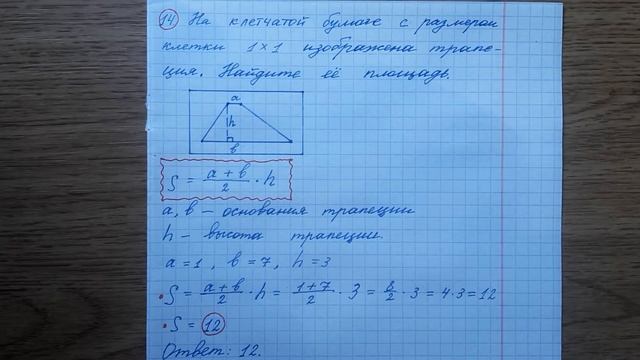 14 На клетчатой бумаге с размером
клетки 1×1 изображена трапе-
ция. Найдите её площадь.
a
h
b
S = a + b / 2 · h
a, b – основания трапеции
h – высота трапеции
a = 1 , b = 7 , h = 3
S = a + b / 2 · h = 1 + 7 / 2 · 3 = 8 / 2 · 3 = 4 · 3 = 12
S = 12
Ответ: 12.